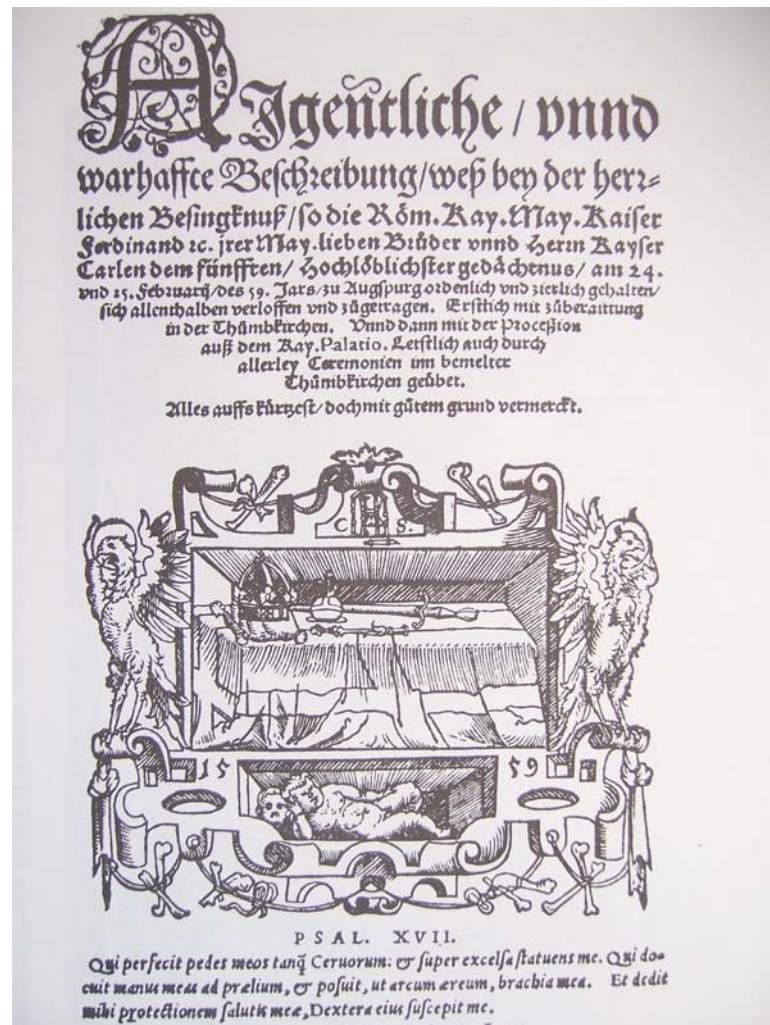 AIgentliche / vnnd
warhaffte Beschreibung/weß bey der herr⸗
lichen Besingknuß/so die Röm.Kay.May.Kaiser
Ferdinand ꝛc. jrer May.lieben Brůder vnnd Herrn Kayser
Carlen dem fünfften/ Hochlöblichster gedächtnus/ am 24.
vnd 25. Februarij/des 59. Jars/zu Augspurg ordenlich vnd zierlich gehalten/
sich allenthalben verloffen vnd zůgetragen. Erstlich mit zůberaittung
in der Thůmbkirchen. Vnnd dann mit der Proceßion
auß dem Kay.Palatio. Letstlich auch durch
allerley Ceremonien inn bemelter
Thůmbkirchen geübet.
Alles auffs kürtzest/doch mit gůtem grund vermerckt.
C S.
15 59
PSAL. XVII.
Qui perfecit pedes meos tanq̃ Ceruorum: & super excelsa statuens me. Qui do⸗
cuit manus meas ad prælium, & posuit, ut arcum æreum, brachia mea. Et dedit
mihi protectionem salutis meæ,Dextera eius suscepit me.